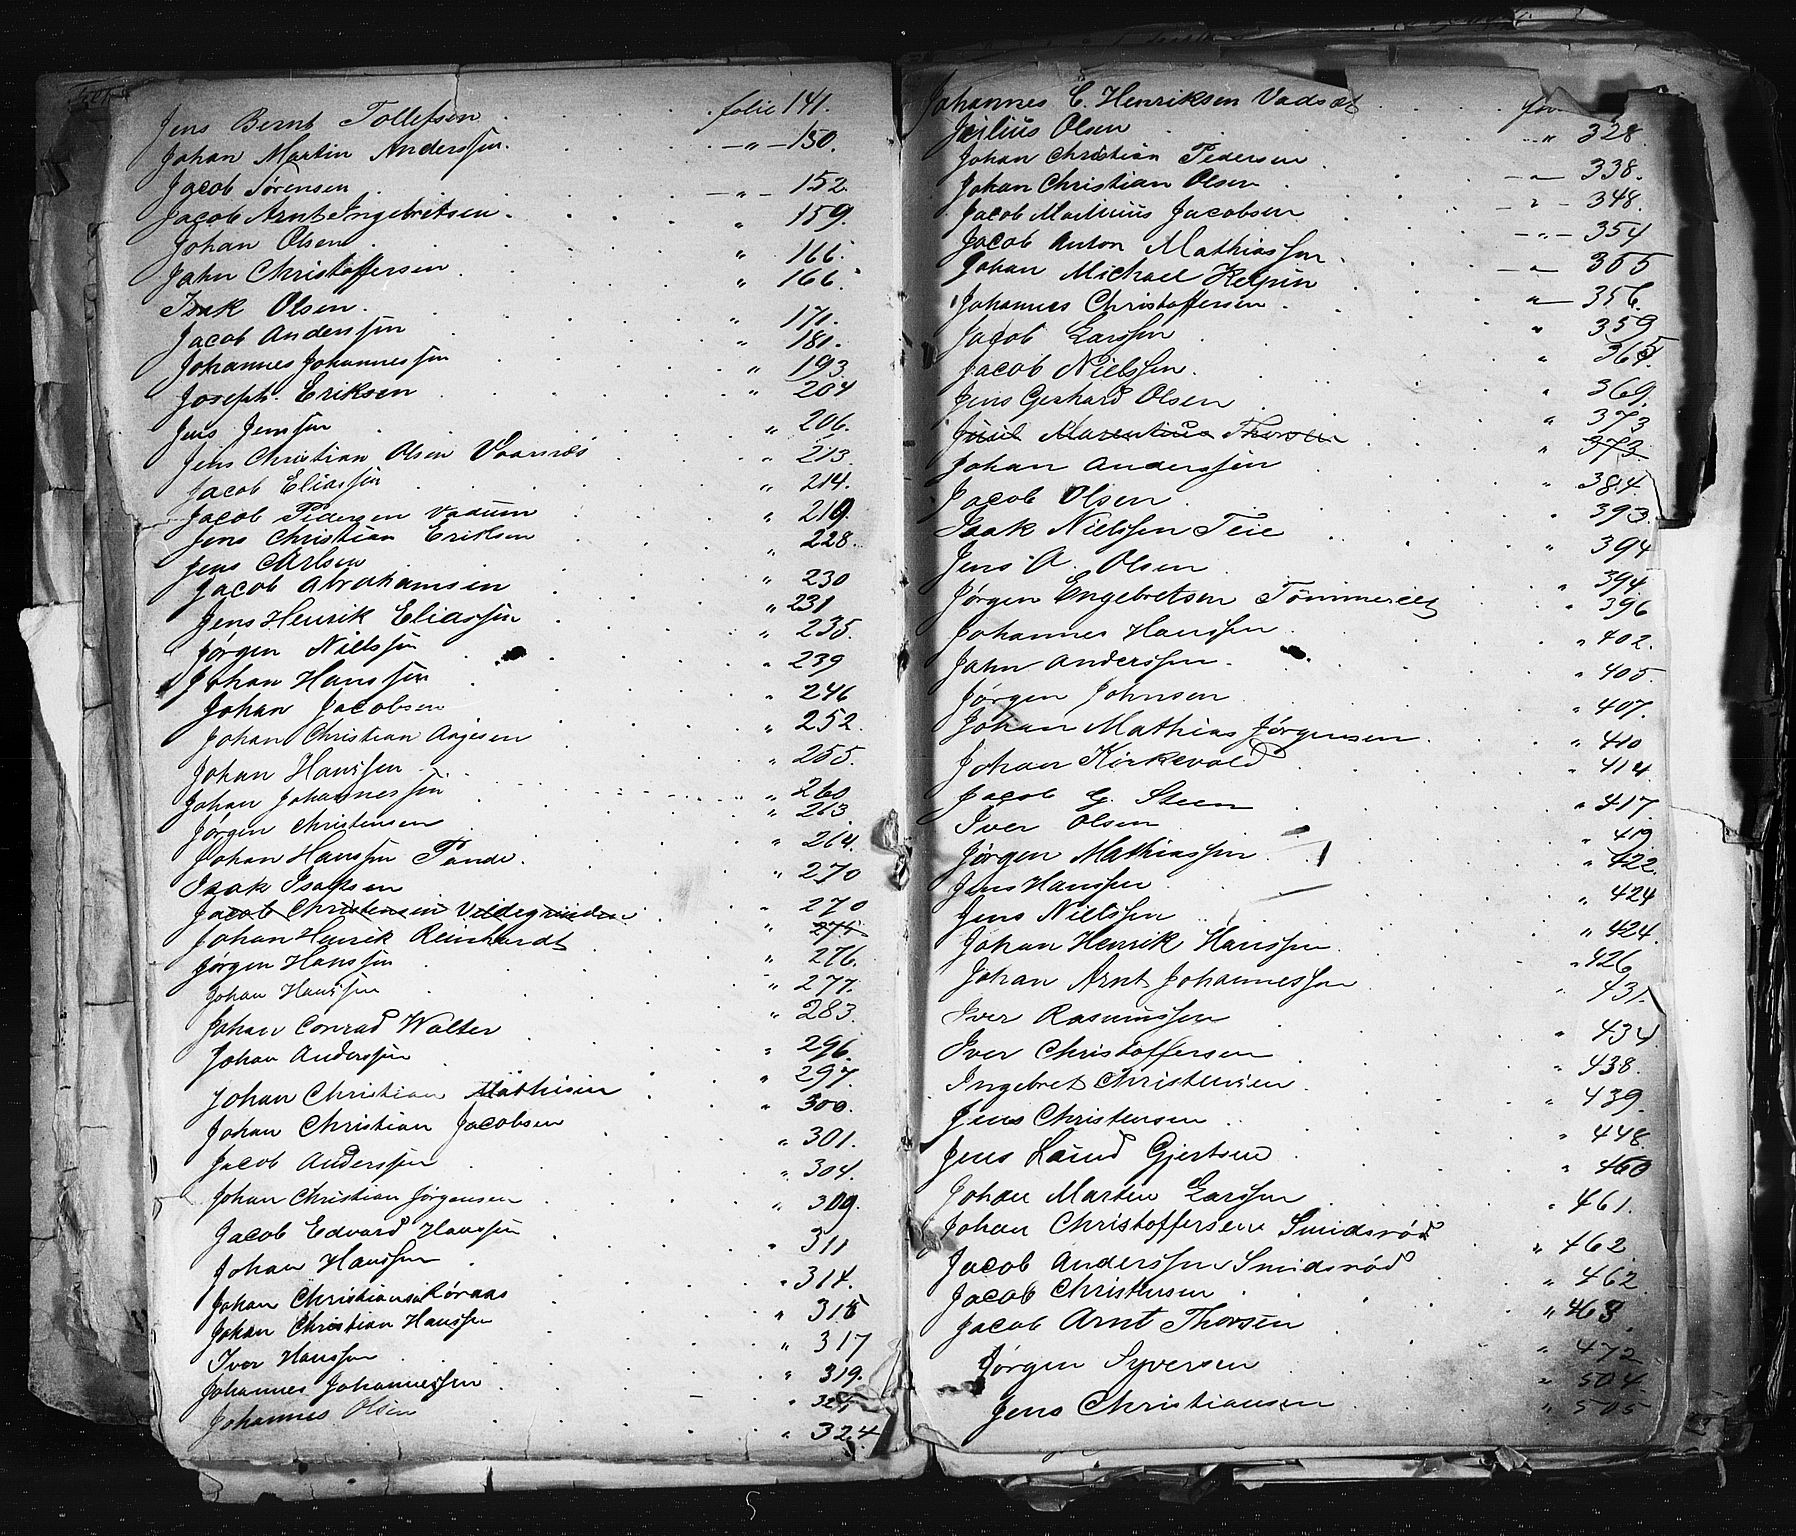 Jens Bernt Tollefsen folie 141.
Johan Martin Anderssen. — " — 150.
Jacob Sørensen — " — 152.
Jacob Arnt Ingebretsen. " 159.
Johan Olsen " 166.
Jahn Christoffersen " 166.
Isak Olsen. " 171.
Jacob Anderssen " 181.
Johannes Johannessen " 193.
Joseph Eriksen " 204
Jens Jenssen " 206.
Jens Christian Olsen Vaarnæs " 213.
Jacob Eliassen " 214.
Jacob Pedersen Vadum " 219.
Jens Christian Eriksen " 228.
Jens Carlsen " 230
Jacob Abrahamsen " 231
Jens Henrik Eliassen " 235.
Jørgen Nielssen " 239
Johan Hanssen " 246
Johan Jacobsen " 252.
Johan Christian Aagesen " 255.
Johan Hanssen " 260
Johan Johannessen " 263.
Jørgen Christensen " 264.
Johan Hanssen Pande. " 270
Isak Isaksen " 270
Jacob Christensen Veidegrinden " 275.
Johan Henrik Reinhardt " 276.
Jørgen Hanssen " 277.
Johan Hanssen " 283.
Johan Conrad Walter " 296.
Johan Anderssen " 297.
Johan Christian Mathisen " 300.
Johan Christian Jacobsen " 301.
Jacob Anderssen " 304.
Johan Christian Jørgensen " 309.
Jacob Edvard Hanssen " 311
Johan Hanssen " 314.
Johan Christiansen Røraas " 315
Johan Christian Hanssen " 317
Iver Hanssen " 319.
Johannes Johannessen "
Johannes Olsen " 324
Johannes C. Henriksen Vadsæt
Julius Olsen " 328.
Johan Christian Pedersen — " — 338.
Johan Christian Olsen — " — 348.
Jacob Jacobsen — " — 354
Jacob Anton Mathiassen — " — 355
Johan Michael " — 356.
Johannes Christoffersen. " 359
Jacob Larssen " 365
Jacob Nielssen. " 369.
Jens Gerhard Olsen " 373
Marentius Thorsen " 373.
Johan Anderssen " 384.
Jacob Olsen " 393.
Isak Nielssen Teie " 394
Jens A. Olsen " 394
Jørgen Engebretsen " 396
Johannes Hanssen " 402.
Jahn Anderssen. " 405.
Jørgen Johnsen " 407.
Johan Mathias Jørgensen. " 410
Johan Kirkevold " 414
Jacob G. Steen " 417.
Iver Olsen " 419
Jørgen Mathiassen " 422.
Jens Hanssen " 424
Jens Nielssen " 424.
Johan Henrik Hanssen " 426
Johan Arnt Johannessen 431.
Iver Rasmussen " 434
Iver Christoffersen " 438.
Ingebret Christensen " 439.
Jens Christensen " 448.
Jens Laurd Gjertsen " 460
Johan Martin Larssen " 461.
Johan Christoffersen Smidsrød " 462.
Jacob Anderssen Smidsrød " 462
Jacob Christensen " 463.
Jacob Arnt Thorsen " 472
Jørgen Syversen " 504.
Jens Christiansen " 505
5